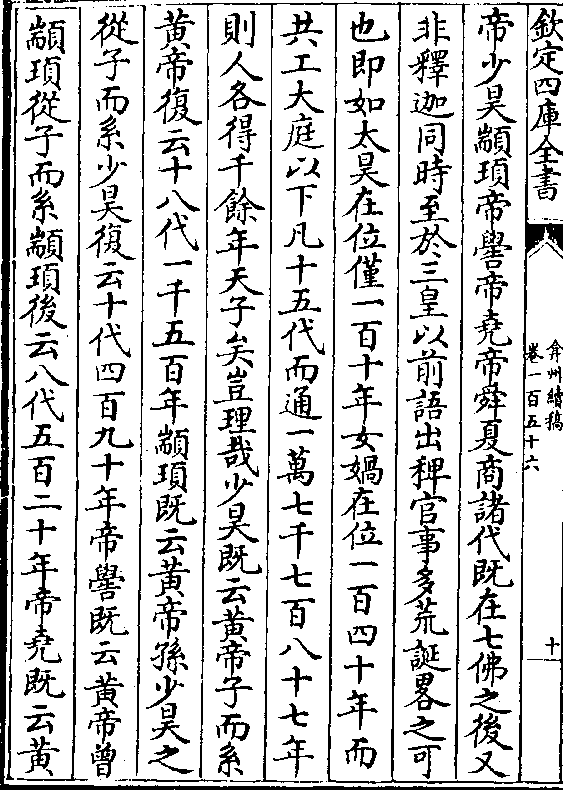 欽定四庫全書
弇州續稿
卷一百五十六
十
帝少昊顓頊帝嚳帝堯帝舜夏商諸代既在七佛之後又
非釋迦同時至於三皇以前語出稗官事多荒誕畧之可
也即如太昊在位僅一百十年女媧在位一百四十年而
共工大庭以下凡十五代而通一萬七千七百八十七年
則人各得千餘年天子矣豈理哉少昊既云黄帝子而系
黄帝復云十八代一千五百年顓頊既云黄帝孫少昊之
從子而系少昊復云十代四百九十年帝嚳既云黄帝曾
顓頊從子而系顓頊後云八代五百二十年帝堯既云黄